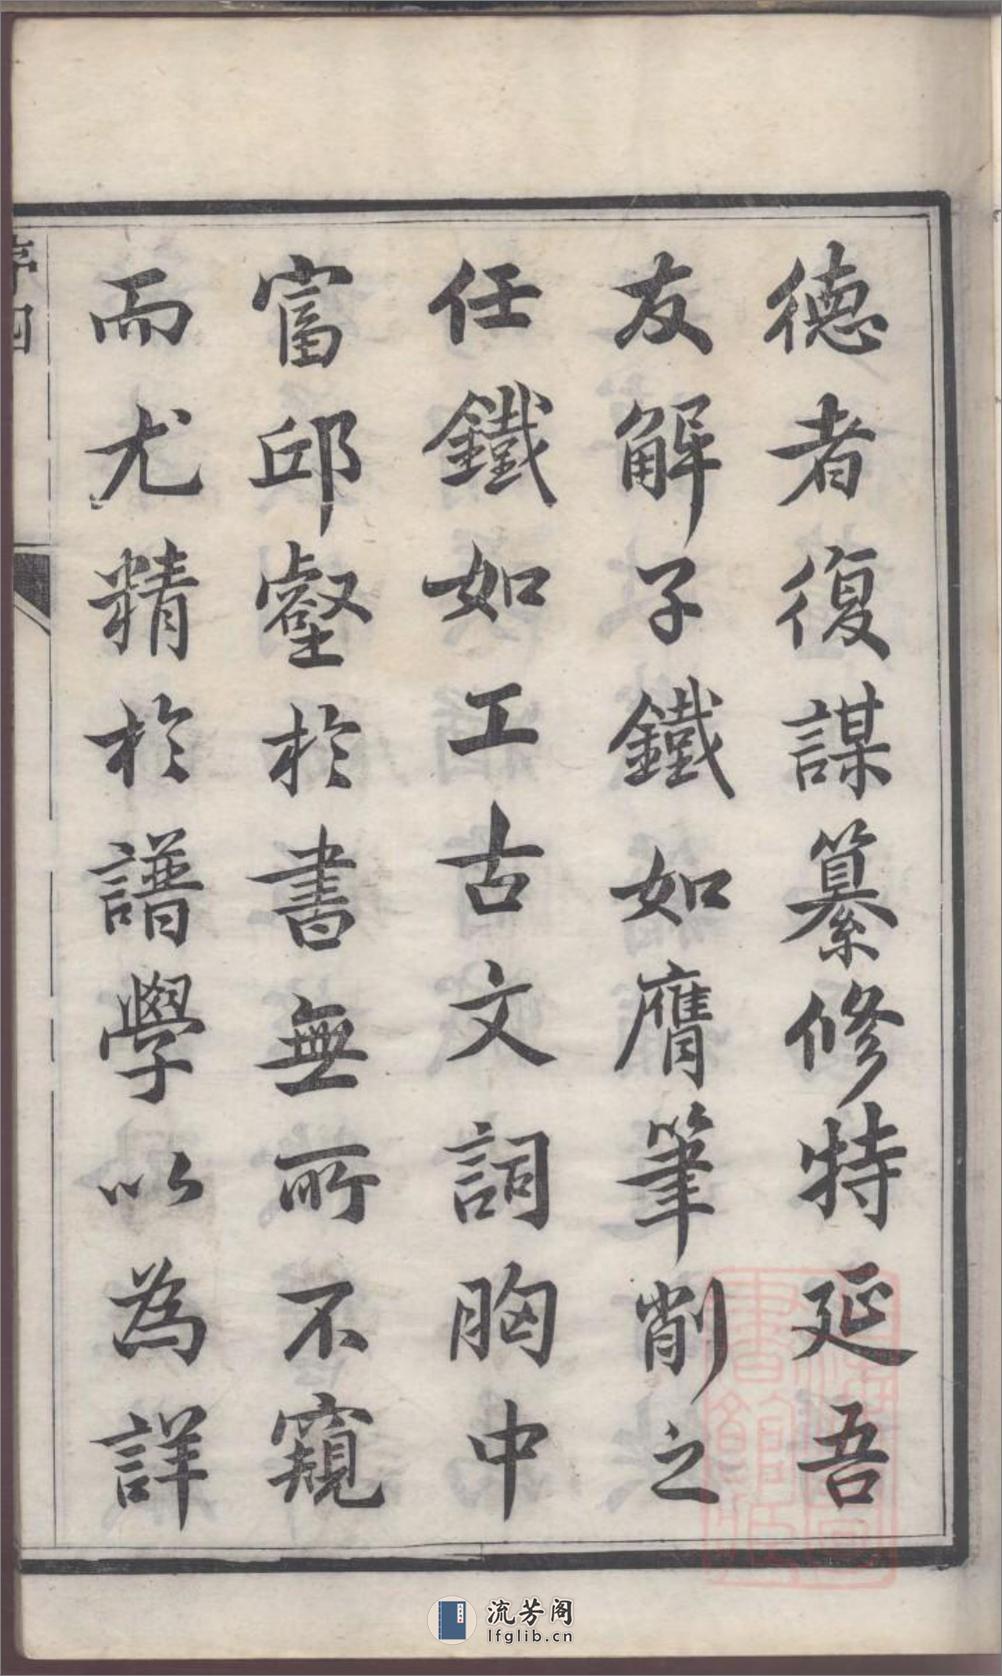 德者復謀纂修特延吾
友解子鐵如膺筆削之
任鐵如工古文詞胸中
富邱壑於書無所不窺
而尤精於譜學以為詳
序四
流芳阁
lfglib.cn